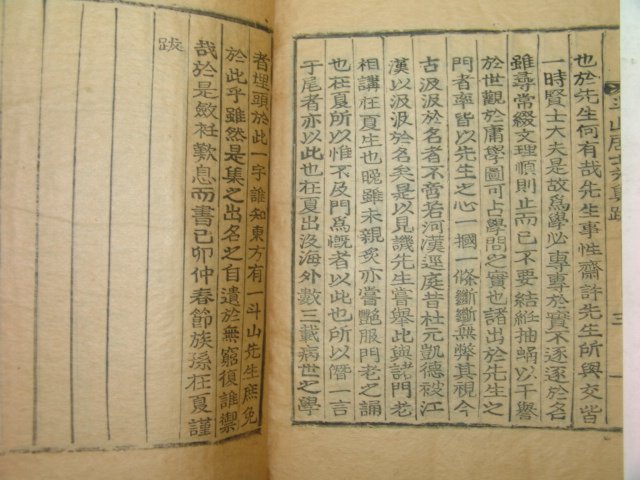 也於先生何有哉先生事性齋許先生所與交皆
一時賢士大夫是故爲學必專專於實不逐逐於名
雖尋常綴文理順則止而已不要結絍抽蜹以干譽
於世觀於庸學圖可占學問之實也諸出於先生之
門者率皆以先生之心一摑一條斷斷無弊其視今
古汲汲於名者不啻若河漢逕庭昔杜元凱德被江
漢以汲汲於名矣是以見譏先生嘗擧此與諸門老
相講在夏生也晚雖未親炙亦嘗艶服門老之誦
也在夏所以惟不及門爲慨者以此也所以僭一言
于尾者亦以此也在夏出沒海外數三載病世之學
斗山居士
跋
三
者埋頭於此一字誰知東方有一斗山先生庶免
於此乎雖然是集之出名之自遺於無窮復誰禦
哉於是斂衽歎息而書己卯仲春節族孫在夏謹
跋